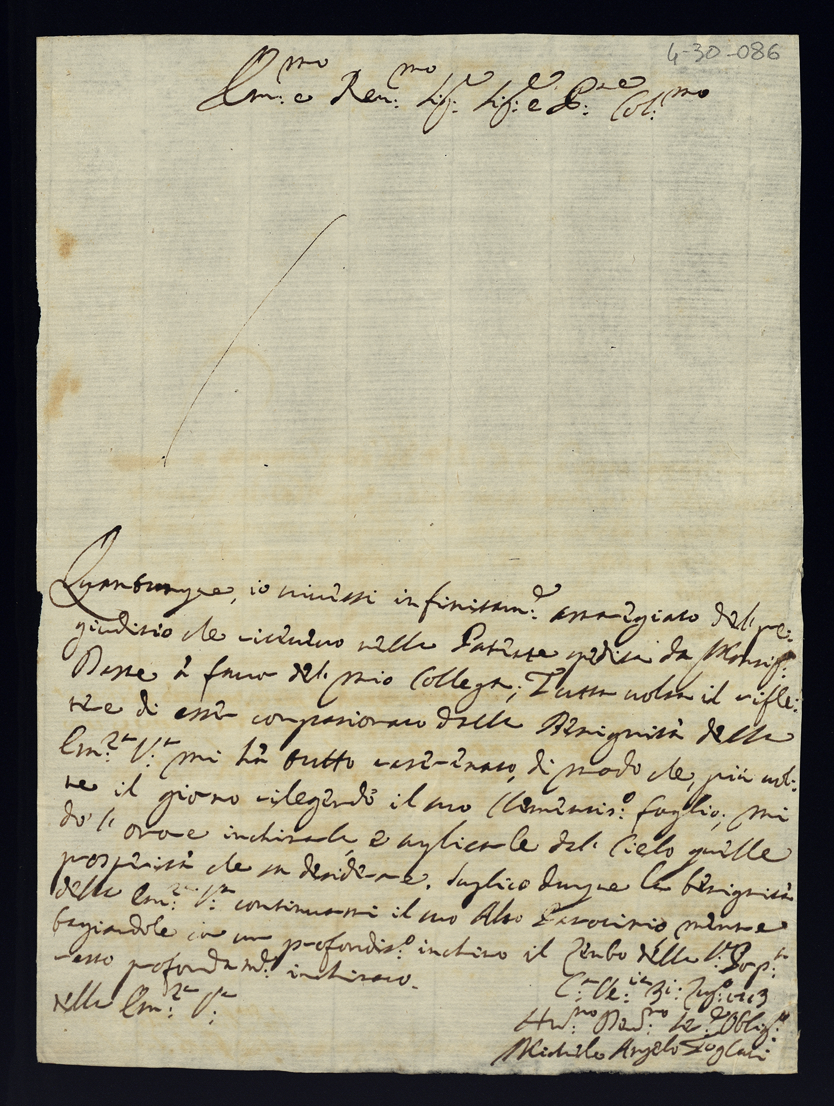 4-30-086
Em:mo e Rev:mo Sig:r Sig:r e P:ne Col:mo
Quantunque, io vivessi infinitam:e amaregiato del pre-
giuditio che ricevevo nella Patente spedita da Monsig:
a favor del mio Collega; Tutta volta il rifle-
tere di esser compasionato dalla Benignità della
Em:za V:a mi hà tutto di modo che, più vol-
te il giorno rilegendo il suo Clementis:o foglio, mi
dò l'onore inchinarla, e auplicarle dal Cielo quelle
prosperità che sa desiderare. Suplico dunque la benignità
della Em:za V:a continuarmi il suo Alto Patrocinio mentre
bagiandole con un profondis:o inchino il lembo della
resto profondam:e inchinato.
della Em:za V:a
Hu:mo Dev:mo Se:re Oblig:mo
Michele Angelo